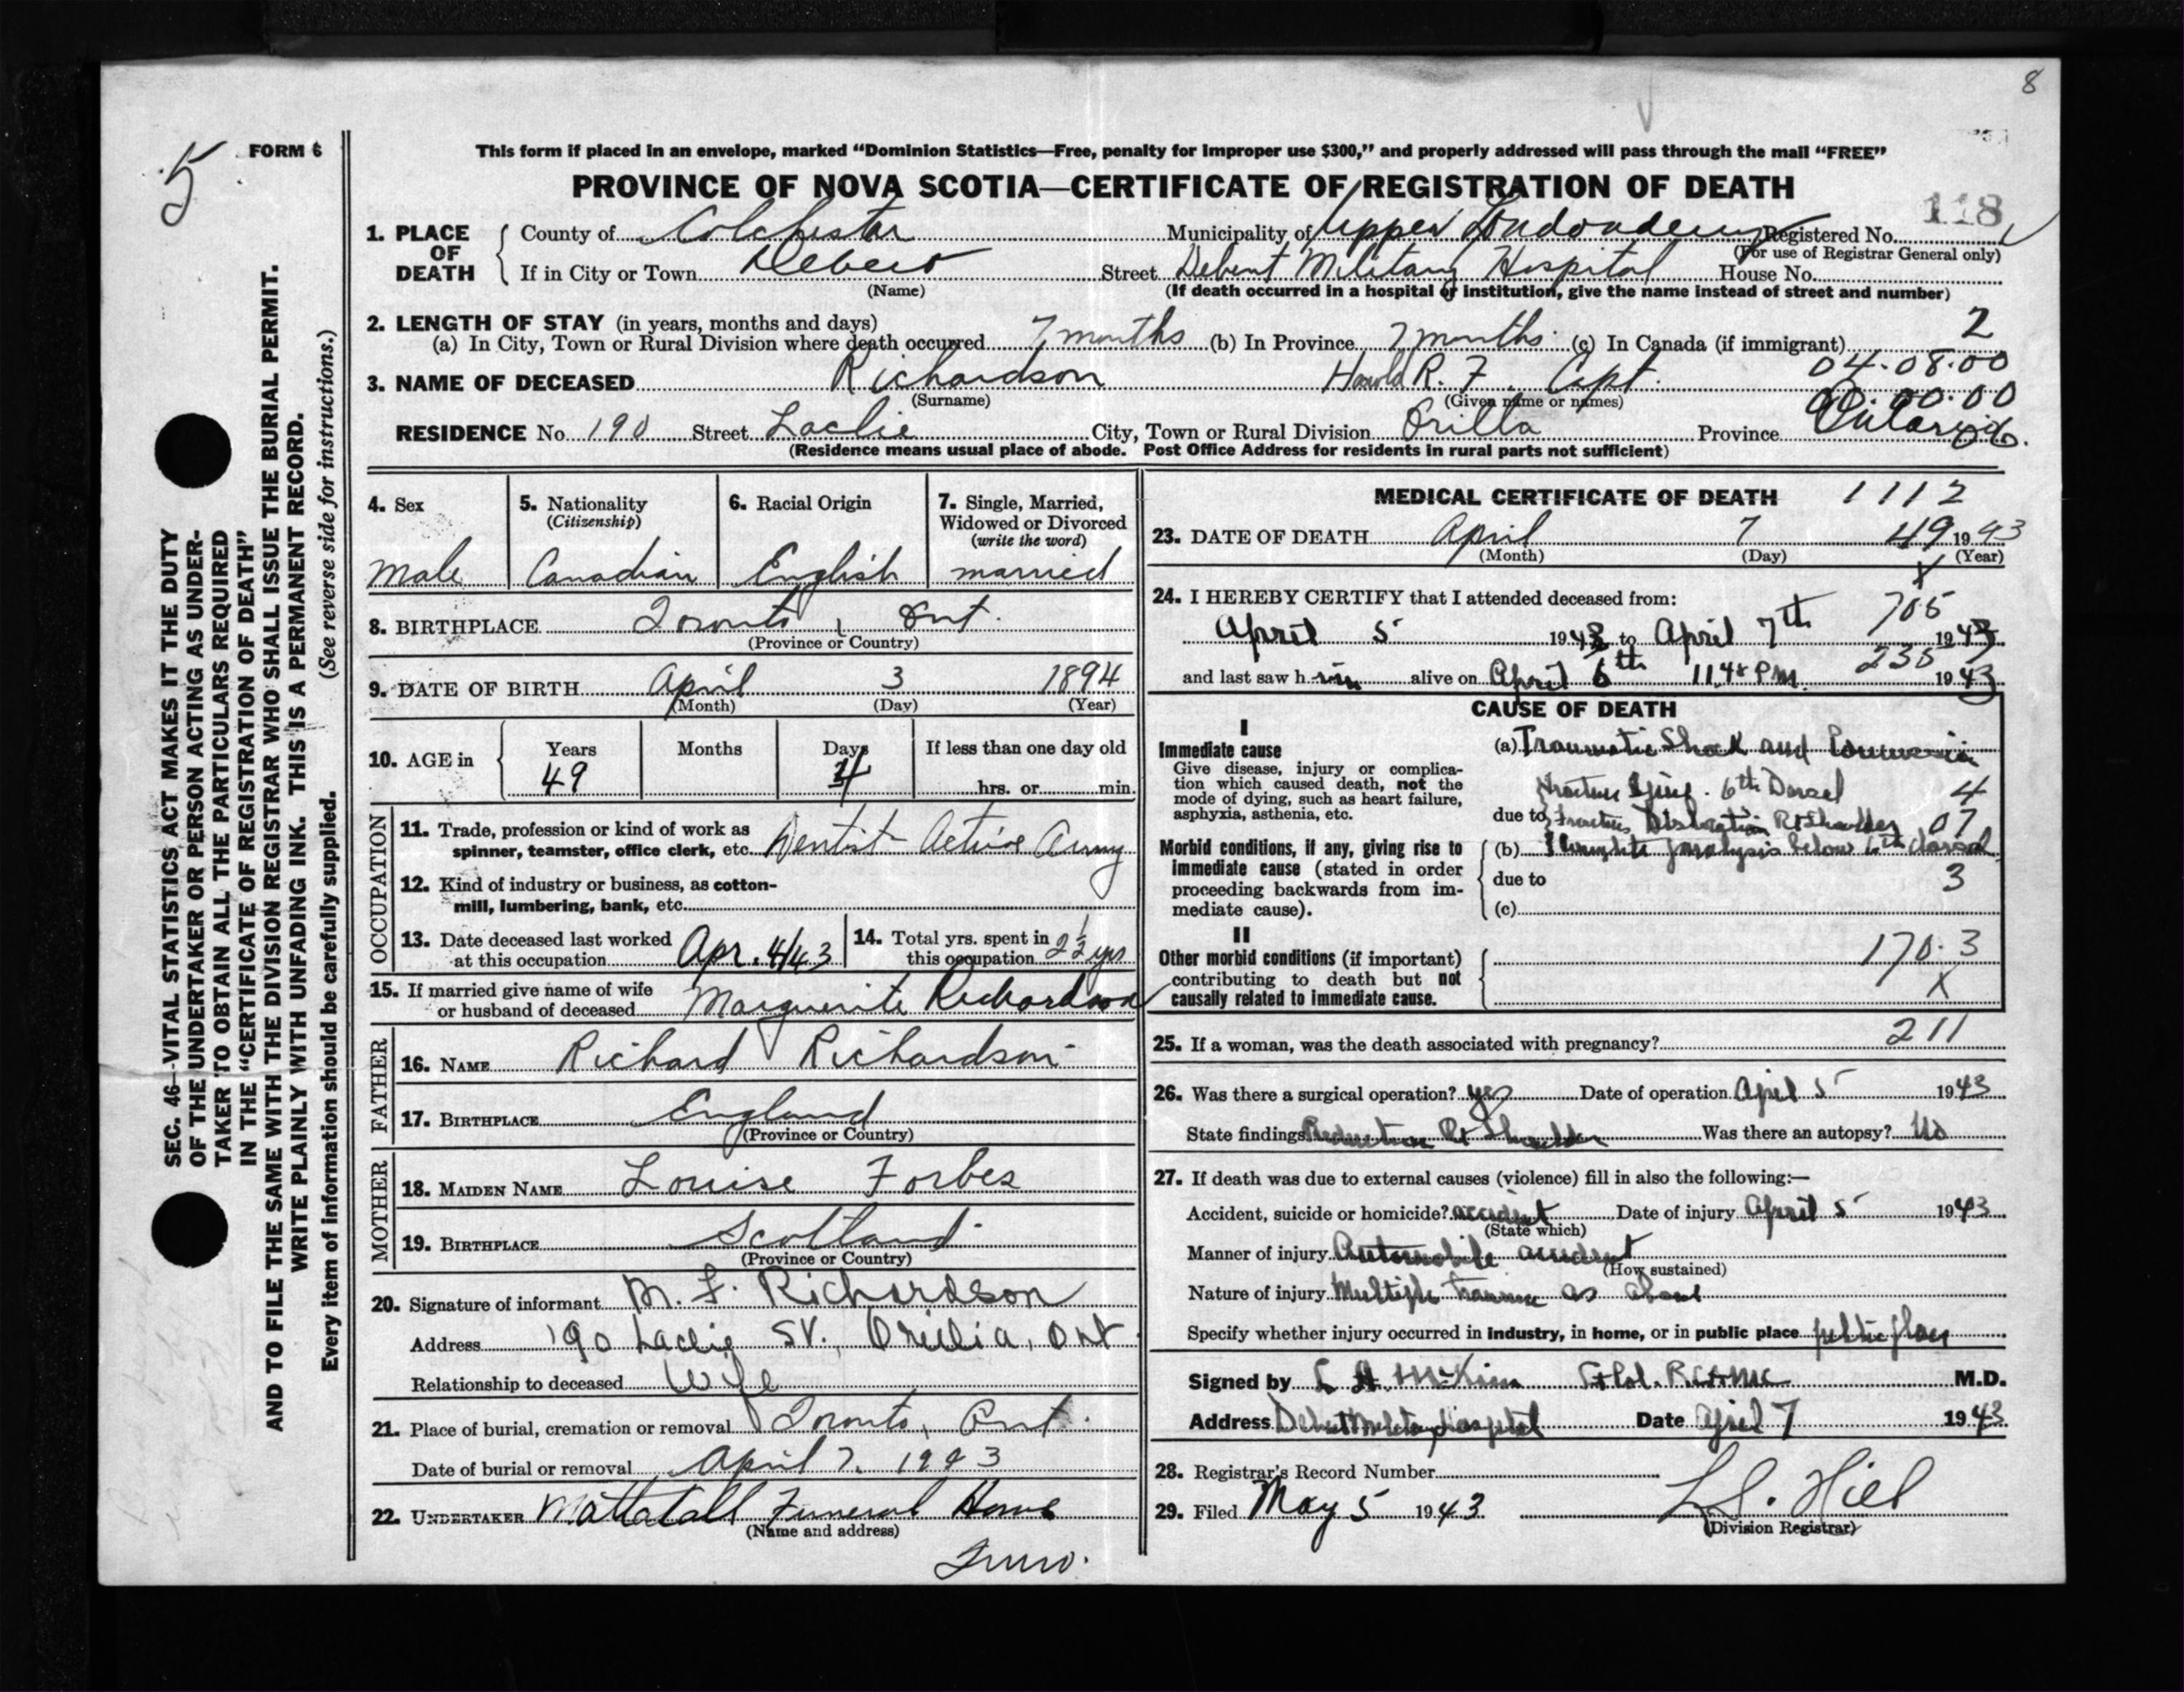 8
5
FORM 6
This form if placed in an envelope, marked “Dominion Statistics—Free, penalty for improper use $300,” and properly addressed will pass through the mail “FREE”
PROVINCE OF NOVA SCOTIA—CERTIFICATE OF REGISTRATION OF DEATH
118
1. PLACE OF DEATH
County of Colchester Municipality of Upper Londonderry Registered No.
(For use of Registrar General only)
If in City or Town Debert Street Debert Military Hospital House No.
(Name) (If death occurred in a hospital or institution, give the name instead of street and number)
2. LENGTH OF STAY (in years, months and days) 2
(a) In City, Town or Rural Division where death occurred 7 months (b) In Province 7 months (c) In Canada (if immigrant)
04.08.00
3. NAME OF DECEASED Richardson Harold R. F. Capt.
(Surname) (Given name or names) 00.00.00
RESIDENCE No. 190 Street Laclie City, Town or Rural Division Orilla Province Ontario
(Residence means usual place of abode. Post Office Address for residents in rural parts not sufficient)
4. Sex
Male
5. Nationality
(Citizenship)
Canadian
6. Racial Origin
English
7. Single, Married,
Widowed or Divorced
(write the word)
married
8. BIRTHPLACE Toronto, Ont.
(Province or Country)
9. DATE OF BIRTH April 3 1894
(Month) (Day) (Year)
10. AGE in
Years Months Days If less than one day old
49 4 hrs. or min.
OCCUPATION
11. Trade, profession or kind of work as
spinner, teamster, office clerk, etc. Dentist Active Army
12. Kind of industry or business, as cotton-
mill, lumbering, bank, etc.
13. Date deceased last worked
at this occupation Apr. 4/43
14. Total yrs. spent in
this occupation 2½ yrs
15. If married give name of wife
or husband of deceased Marguerite Richardson
FATHER
16. NAME Richard Richardson
17. BIRTHPLACE England
(Province or Country)
MOTHER
18. MAIDEN NAME Louise Forbes
19. BIRTHPLACE Scotland
(Province or Country)
20. Signature of informant M. F. Richardson
Address 190 Laclie St. Orillia, Ont
Relationship to deceased Wife
21. Place of burial, cremation or removal Toronto, Ont.
Date of burial or removal April 7. 1943
22. UNDERTAKER Mattatall Funeral Home
(Name and address)
Truro.
MEDICAL CERTIFICATE OF DEATH 1112
23. DATE OF DEATH April 7 49 1943
(Month) (Day) (Year)
X
24. I HEREBY CERTIFY that I attended deceased from:
705
April 5 1943 to April 7th 1943
235
and last saw h im alive on April 6th 11.48 P.M. 1943
CAUSE OF DEATH
I
Immediate cause
Give disease, injury or complica-
tion which caused death, not the
mode of dying, such as heart failure,
asphyxia, asthenia, etc.
(a) Traumatic Shock and
Fracture Spine. 6th Dorsal 4
due to Dislocation Rt Shoulder 07
Morbid conditions, if any, giving rise to
immediate cause (stated in order
proceeding backwards from im-
mediate cause).
(b) Complete paralysis below 6th dorsal
due to 3
(c)
II
Other morbid conditions (if important)
contributing to death but not
causally related to immediate cause.
170.3
X
211
25. If a woman, was the death associated with pregnancy?
26. Was there a surgical operation? yes Date of operation April 5 1943
State findings Reduction Rt Shoulder Was there an autopsy? No
27. If death was due to external causes (violence) fill in also the following:—
Accident, suicide or homicide? accident Date of injury April 5 1943
(State which)
Manner of injury Automobile accident
(How sustained)
Nature of injury Multiple trauma as above
Specify whether injury occurred in industry, in home, or in public place public place
Signed by McKim R.C.A.M.C M.D.
Address Debert Military Hospital Date April 7 1943
28. Registrar's Record Number
29. Filed May 5 1943 L. S. Hill
(Division Registrar)
SEC. 46—VITAL STATISTICS ACT MAKES IT THE DUTY
OF THE UNDERTAKER OR PERSON ACTING AS UNDER-
TAKER TO OBTAIN ALL THE PARTICULARS REQUIRED
IN THE “CERTIFICATE OF REGISTRATION OF DEATH”
AND TO FILE THE SAME WITH THE DIVISION REGISTRAR WHO SHALL ISSUE THE BURIAL PERMIT.
WRITE PLAINLY WITH UNFADING INK. THIS IS A PERMANENT RECORD.
Every item of information should be carefully supplied. (See reverse side for instructions.)